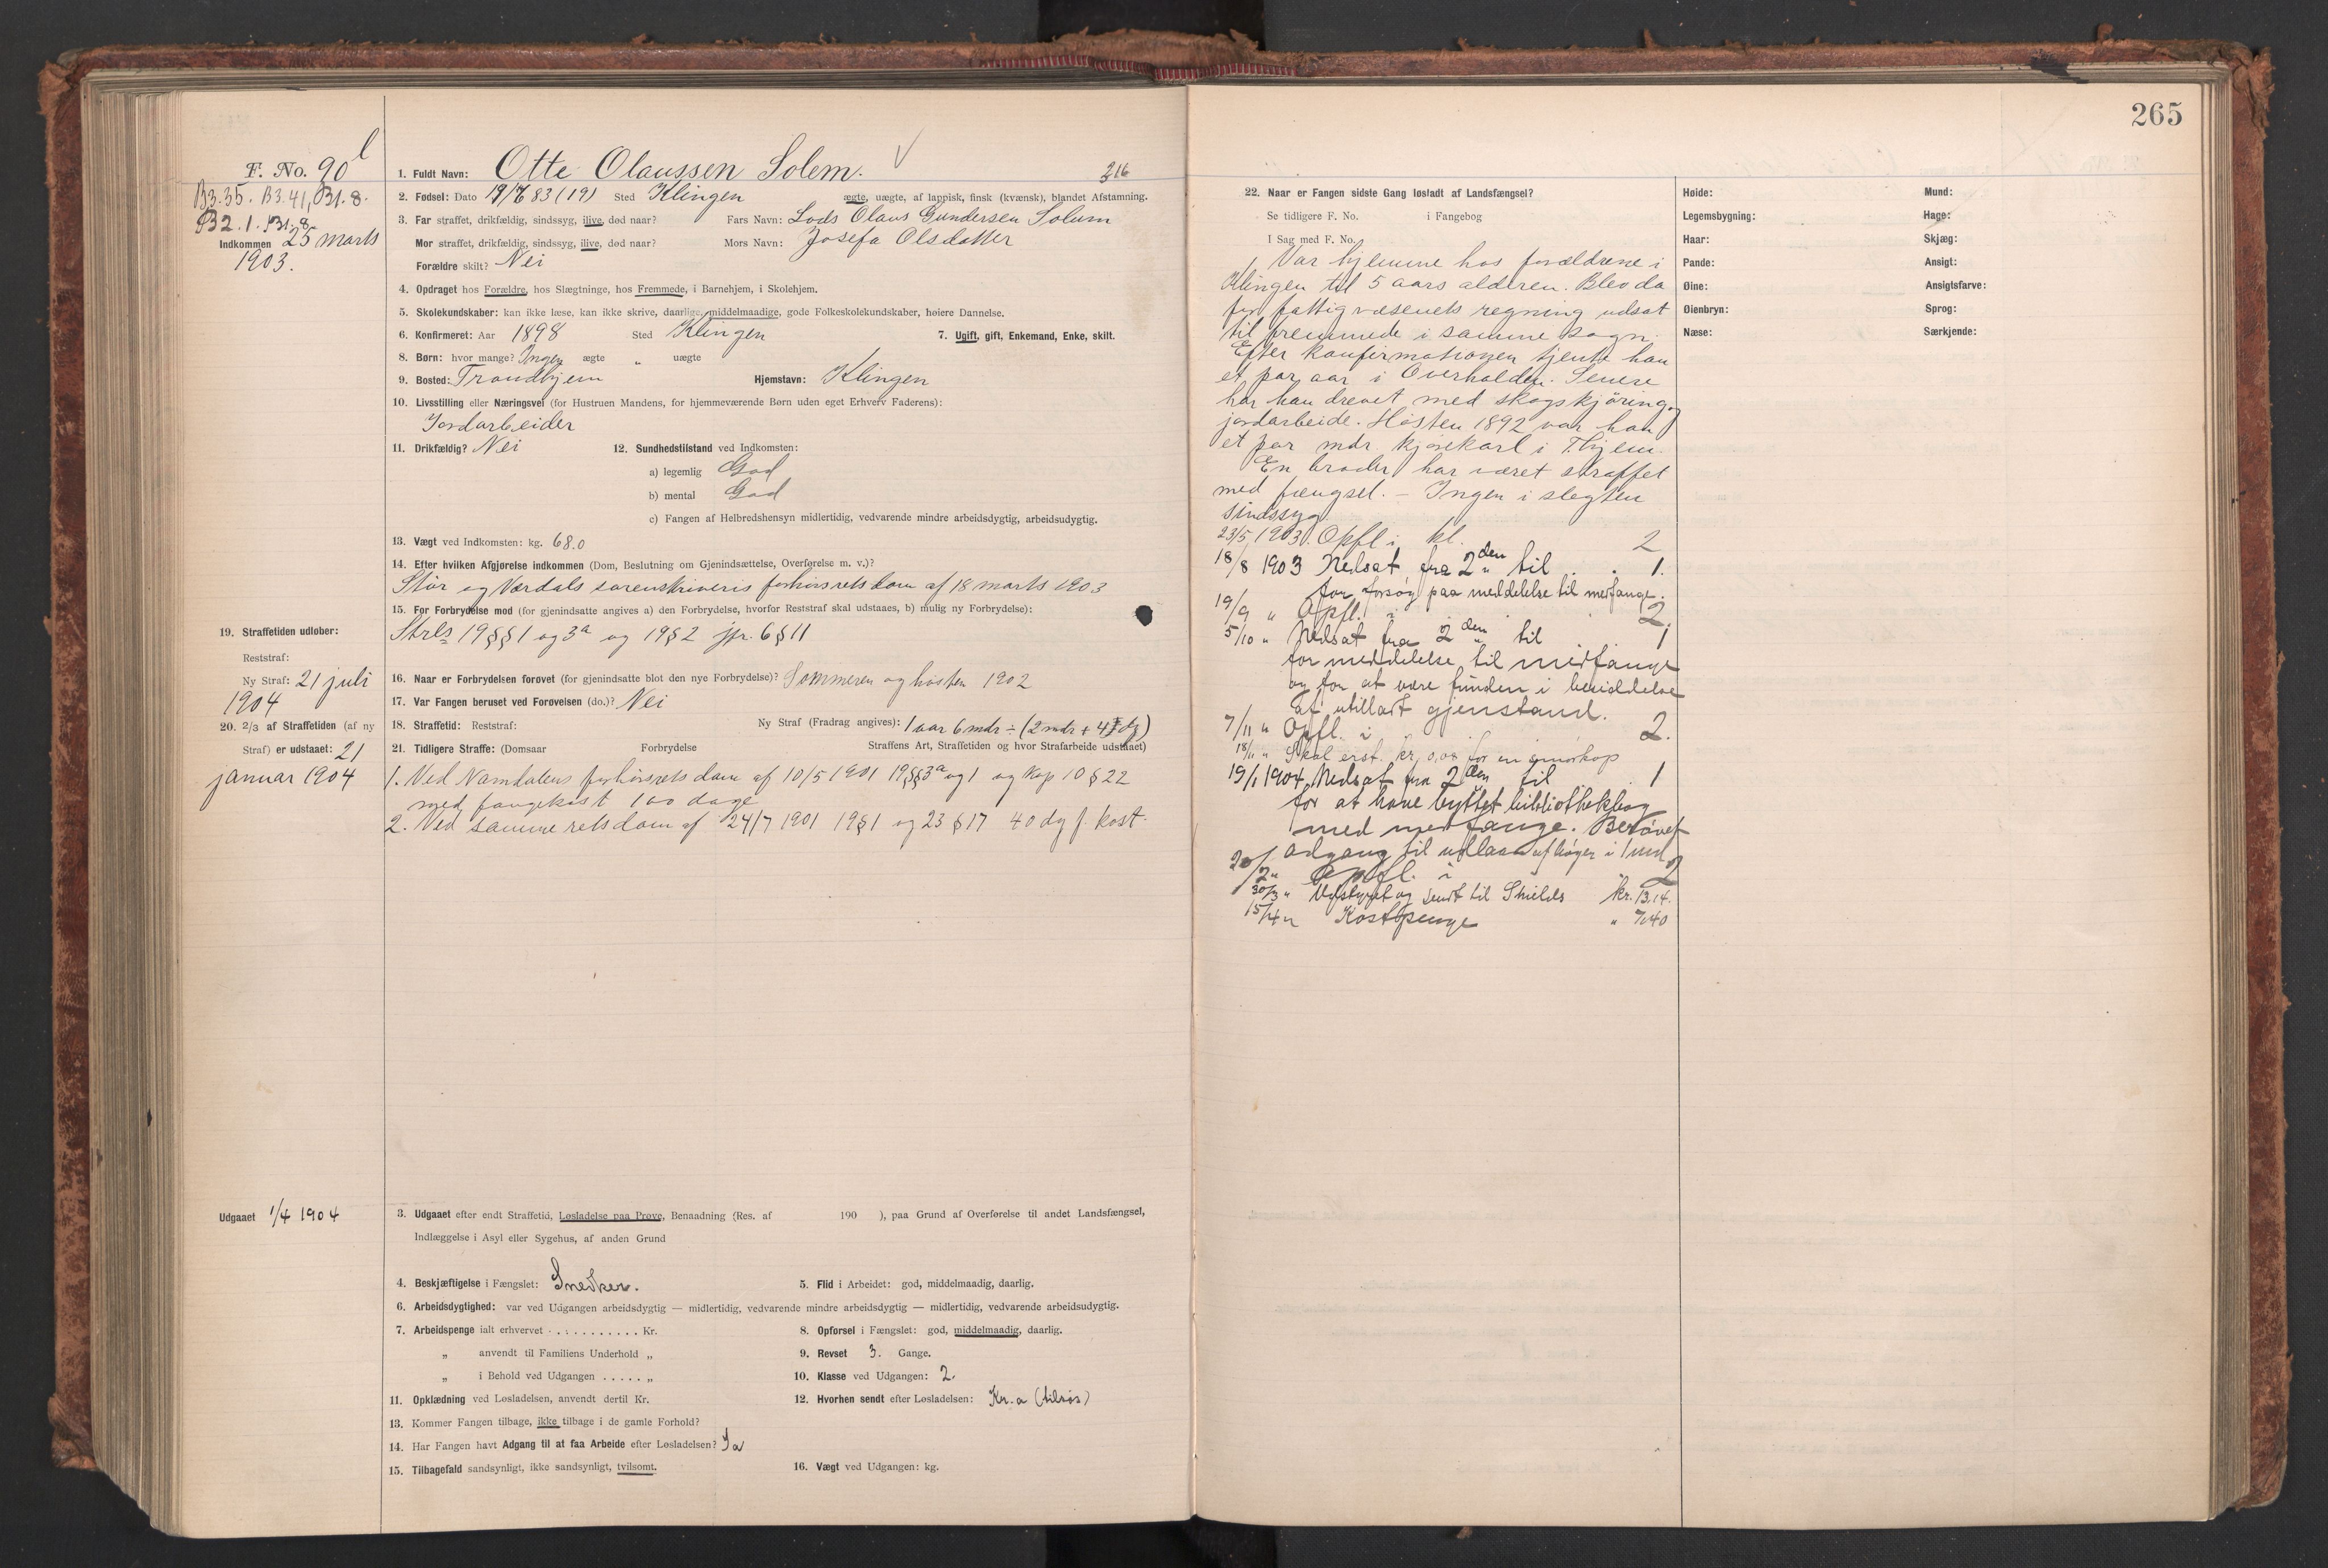 265
F. No. 90 l
B3.35. B3.41, B1.8.
B2.1. B1.8
Indkommen 25 marts
1903.
1. Fuldt Navn: Otte Olaussen Solem. 316
2. Fødsel: Dato 19/7 83 (19) Sted Klingen ægte, uægte, af lappisk, finsk (kvænsk), blandet Afstamning.
3. Far straffet, drikfældig, sindssyg, ilive, død naar? Fars Navn: Lods Olaus Gundersen Solum
Mor straffet, drikfældig, sindssyg, ilive, død naar? Mors Navn: Josefa Olsdatter
Forældre skilt? Nei
4. Opdraget hos Forældre, hos Slægtninge, hos Fremmede, i Barnehjem, i Skolehjem.
5. Skolekundskaber: kan ikke læse, kan ikke skrive, daarlige, middelmaadige, gode Folkeskolekundskaber, høiere Dannelse.
6. Konfirmeret: Aar 1898 Sted Klingen 7. Ugift, gift, Enkemand, Enke, skilt.
8. Børn: hvor mange? Ingen ægte " uægte
9. Bosted: Trondhjem Hjemstavn: Klingen
10. Livsstilling eller Næringsvei (for Hustruen Mandens, for hjemmeværende Børn uden eget Erhverv Faderens):
Jordarbeider
11. Drikfældig? Nei 12. Sundhedstilstand ved Indkomsten:
a) legemlig God
b) mental God
c) Fangen af Helbredshensyn midlertidig, vedvarende mindre arbeidsdygtig, arbeidsudygtig.
13. Vægt ved Indkomsten: kg. 68.0
14. Efter hvilken Afgjørelse indkommen (Dom, Beslutning om Gjenindsættelse, Overførelse m. v.)?
Stør og Værdals sorenskriveris forhørsretsdom af 18 marts 1903
15. For Forbrydelse mod (for gjenindsatte angives a) den Forbrydelse, hvorfor Reststraf skal udstaaes, b) mulig ny Forbrydelse):
Strls 19 §§ 1 og 3a og 19 § 2 jfr. 6 § 11
19. Straffetiden udløber:
Reststraf:
Ny Straf: 21 juli
1904
16. Naar er Forbrydelsen forøvet (for gjenindsatte blot den nye Forbrydelse)? Sommeren og høsten 1902
17. Var Fangen beruset ved Forøvelsen (do.)? Nei
20. 2/3 af Straffetiden (af ny
Straf) er udstaaet: 21
januar 1904
18. Straffetid: Reststraf: Ny Straf (Fradrag angives): 1 aar 6 mdr ÷ (2 mdr + 4 dg)
21. Tidligere Straffe: (Domsaar Forbrydelse Straffens Art, Straffetiden og hvor Strafarbeide udstaaet)
1. Ved Namdalens forhørsrets dom af 10/5 1901 19 §§ 3a og 1 og Kap 10 § 22
med fangekost 100 dage
2. Ved samme rets dom af 24/7 1901 19 § 1 og 23 § 17 40 dg f. kost.
Udgaaet 1/4 1904
3. Udgaaet efter endt Straffetid, Løsladelse paa Prøve, Benaadning (Res. af 190 ), paa Grund af Overførelse til andet Landsfængsel,
Indlæggelse i Asyl eller Sygehus, af anden Grund
4. Beskjæftigelse i Fængslet: Snedker. 5. Flid i Arbeidet: god, middelmaadig, daarlig.
6. Arbeidsdygtighed: var ved Udgangen arbeidsdygtig — midlertidig, vedvarende mindre arbeidsdygtig — midlertidig, vedvarende arbeidsudygtig.
7. Arbeidspenge ialt erhvervet . . . . . . . . . . . Kr. 8. Opførsel i Fængslet: god, middelmaadig, daarlig.
„ anvendt til Familiens Underhold „ 9. Revset 3. Gange.
„ i Behold ved Udgangen . . . . . „ 10. Klasse ved Udgangen: 2.
11. Opklædning ved Løsladelsen, anvendt dertil Kr. 12. Hvorhen sendt efter Løsladelsen: Kr.a (tilsøs)
13. Kommer Fangen tilbage, ikke tilbage i de gamle Forhold?
14. Har Fangen havt Adgang til at faa Arbeide efter Løsladelsen? Ja
15. Tilbagefald sandsynligt, ikke sandsynligt, tvilsomt. 16. Vægt ved Udgangen: kg.
22. Naar er Fangen sidste Gang løsladt af Landsfængsel?
Se tidligere F. No. i Fangebog
I Sag med F. No.
Var hjemme hos forældrene i
Klingen til 5 aars alderen. Blev da
for fattigvæsenets regning udsat
til fremmede i samme sogn.
Efter konfirmationen tjente han
et par aar i Overhalden. Senere
har han drevet med skogskjøring og
jordarbeide. Høsten 1892 var han
et par mdr. kjørekarl i T.hjem.
En broder har været straffet
med fængsel. – Ingen i slegten
sindssyg.
23/5 1903. Opfl i kl. 2
18/8 1903 Nedsat fra 2den til . . 1.
for forsøg paa meddelelse til medfange.
19/9 " Opfl. i 2.
5/10 " Nedsat fra 2den til 1
for meddelelse til medfange
og for at være funden i besiddelse
af utilladt gjenstand.
7/11 " Opfl. i 2.
18/11 " Skal erst. kr. 0,08 for en smørkop
19/1 1904 Nedsat fra 2den til 1
for at have byttet bibliothekbog
med medfange. Berøvet
adgang til udlaan af bøger i 1 md
20/2 " Opfl. i 2
30/3 " Udstyret og sendt til Shields kr. 13,14.
15/4 " Kostpenge " 7,40
Høide: Mund:
Legemsbygning: Hage:
Haar: Skjæg:
Pande: Ansigt:
Øine: Ansigtsfarve:
Øienbryn: Sprog:
Næse: Særkjende: